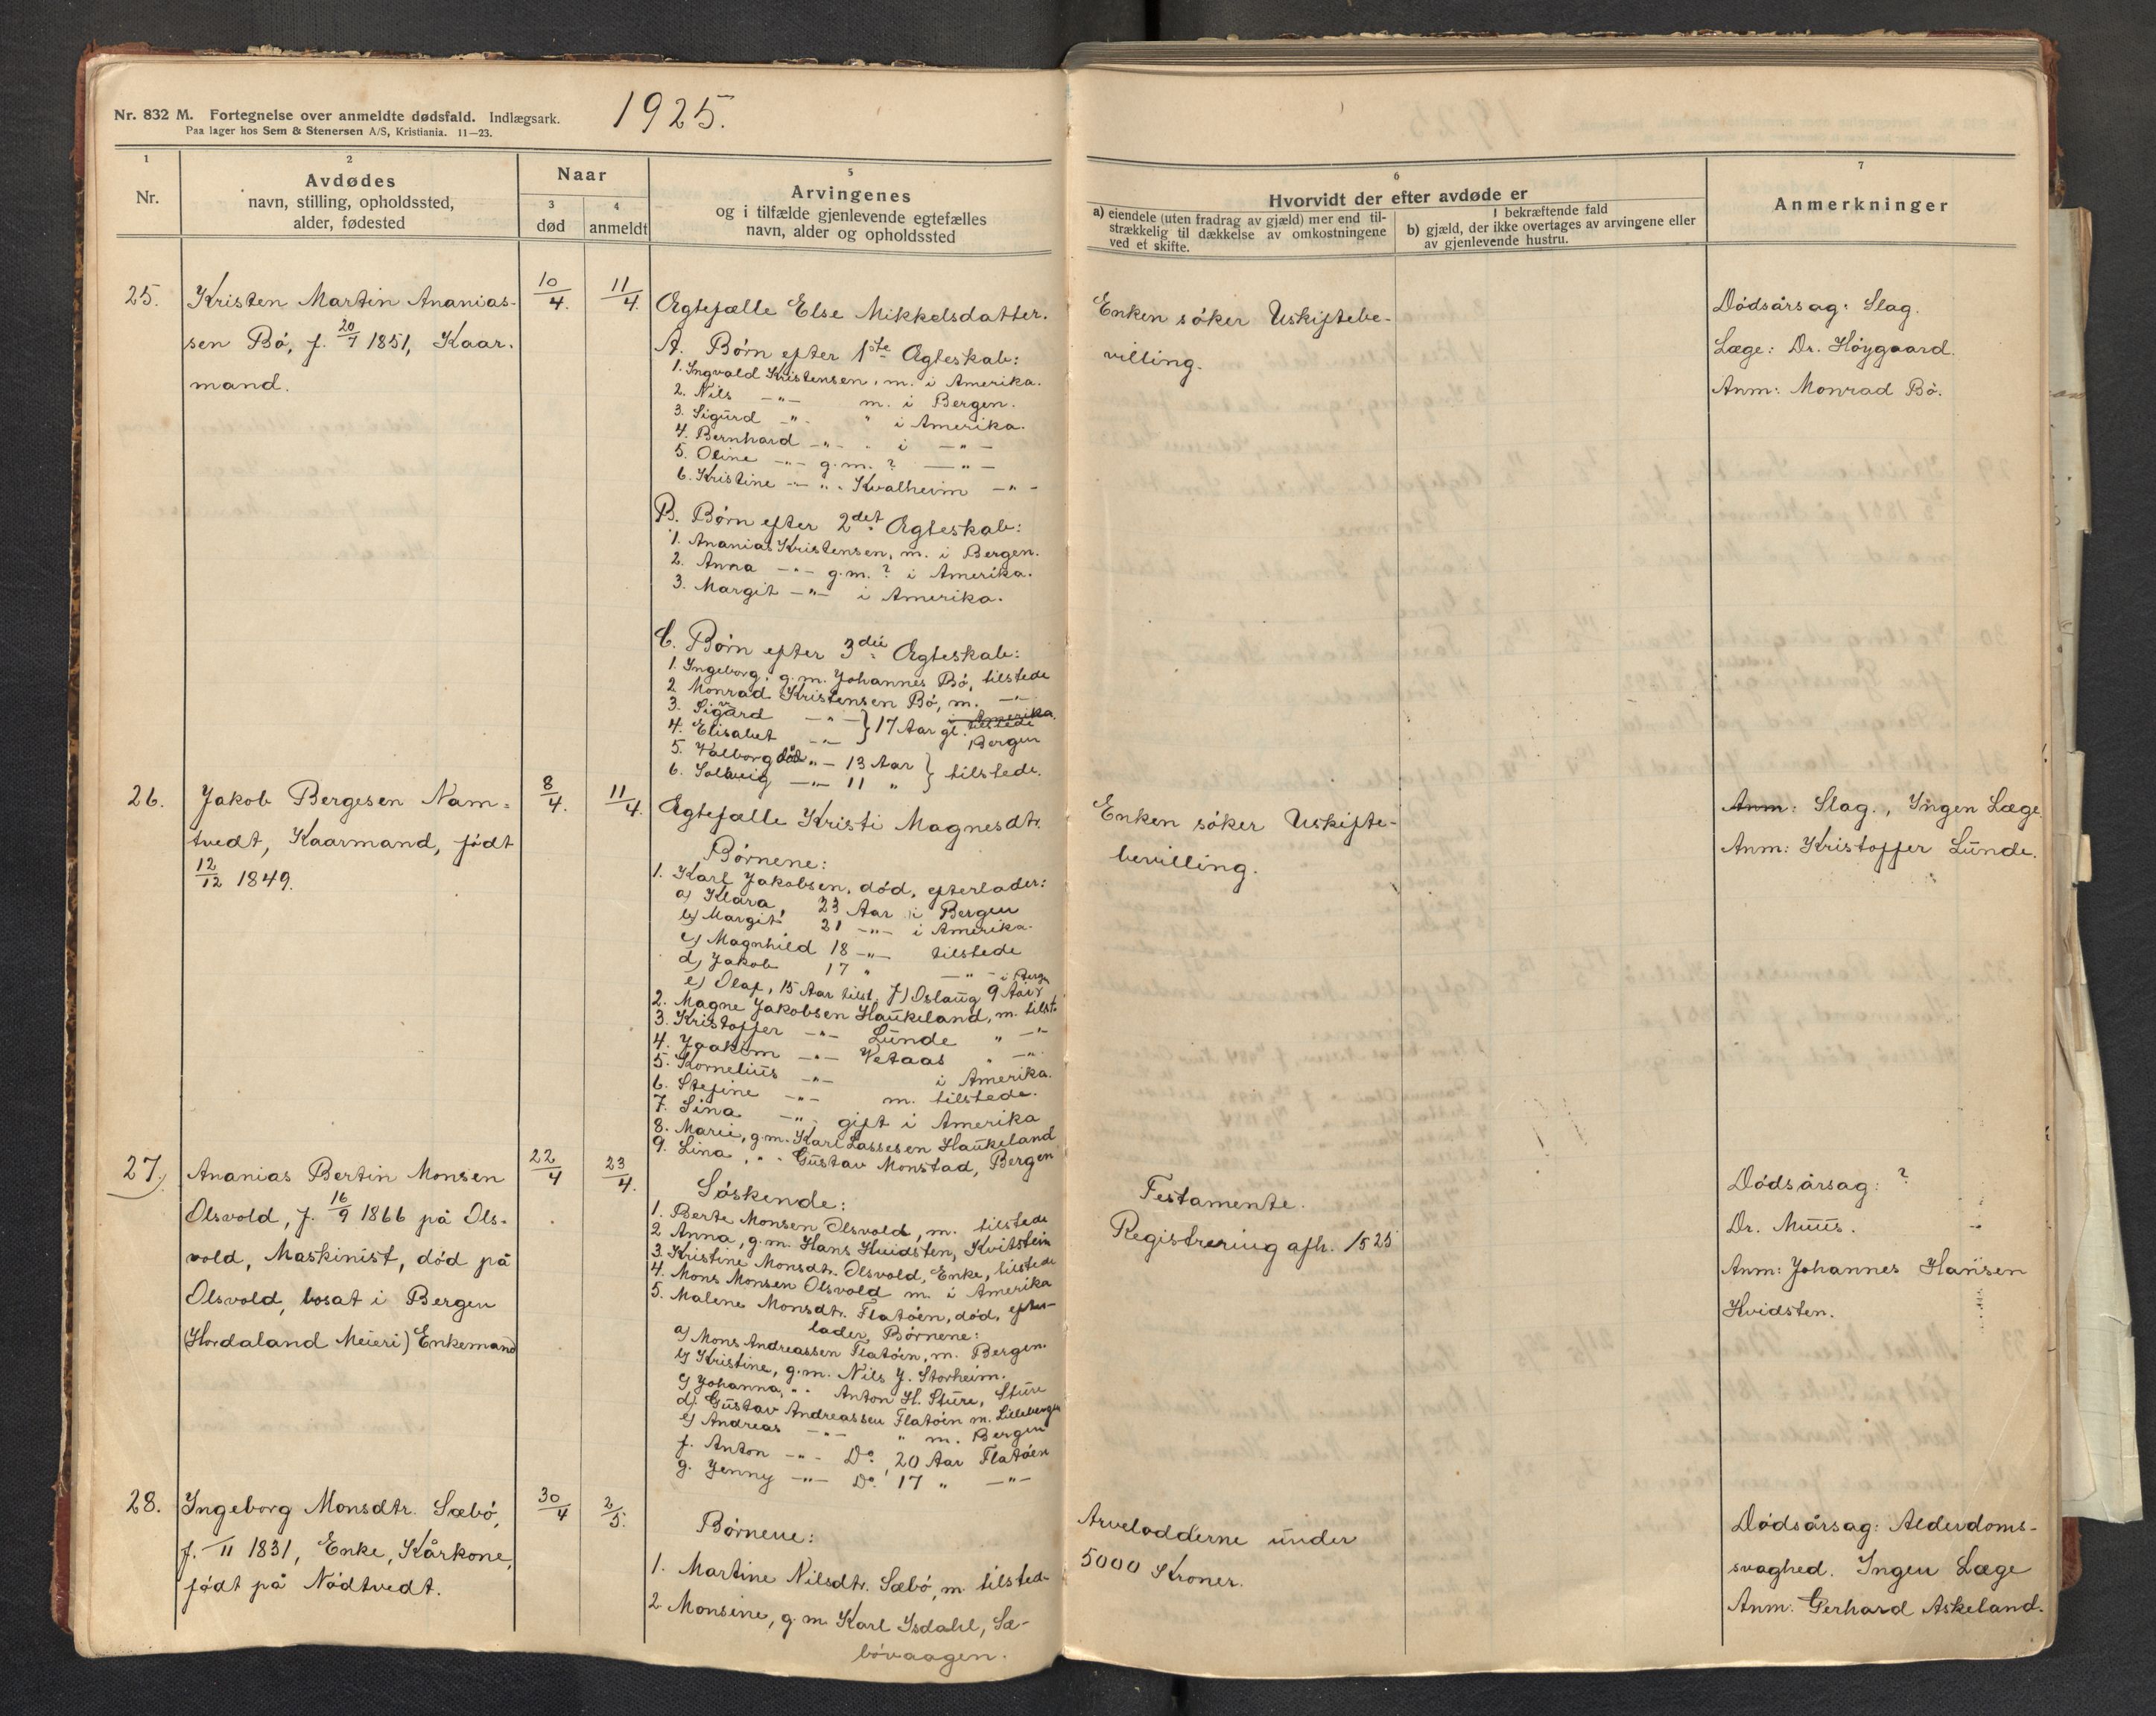 Nr. 832 M. Fortegnelse over anmeldte dødsfald. Indlægsark.
Paa lager hos Sem & Stenersen A/S, Kristiania. 11—23.
1925.
1
Nr.
2
Avdødes
navn, stilling, opholdssted,
alder, fødested
Naar
3
død
4
anmeldt
5
Arvingenes
og i tilfælde gjenlevende egtefælles
navn, alder og opholdssted
6
Hvorvidt der efter avdøde er
a) eiendele (uten fradrag av gjæld) mer end til-
strækkelig til dækkelse av omkostningene
ved et skifte.
I bekræftende fald
b) gjæld, der ikke overtages av arvingene eller
av gjenlevende hustru.
7
Anmerkninger
25.
Kristen Martin Ananias-
sen Bø, f. 20/7 1851, Kaar-
mand.
10/4.
11/4.
Ægtefælle Else Mikkelsdatter.
A. Børn efter 1ste Ægteskab:
1. Ingvald Kristensen, m. i Amerika.
2. Nils —"— m. i Bergen.
3. Sigurd —"— " i Amerika.
4. Bernhard —"— " i —"—
5. Oline —"— g.m. ? —"—
6. Kristine —"— " " Kvalheim —"—
B. Børn efter 2det Ægteskab:
1. Ananias Kristensen, m. i Bergen.
2. Anna —"— g.m. ? i Amerika.
3. Margit —"— i Amerika.
C. Børn efter 3die Ægteskab:
1. Ingeborg, g.m. Johannes Bø, tilstede
2. Monrad Kristensen Bø, m. —"—
3. Sigvard —"— } 17 Aar gl. i Amerika.
4. Elisabet —"— tilstede Bergen
5. Valborg død —"— 13 Aar }
6. Solveig —"— 11 " } tilstede.
Enken søker Uskiftebe-
villing.
Dødsårsag: Slag.
Læge: Dr. Høygaard.
Anm: Monrad Bø.
26.
Jakob Bergesen Nam-
tvedt, Kaarmand, født
12/12 1849.
8/4.
11/4.
Ægtefælle Kristi Magnesdtr.
Børnene:
1. Karl Jakobsen, død, efterlader:
a) Klara, 23 Aar i Bergen
b) Margit 21 —"— i Amerika.
c) Magnhild 18 —"— tilstede
d) Jakob 17 " —"— i Bergen
e) Olaf, 15 Aar tilst. f) Oslaug 9 Aar
2. Magne Jakobsen Haukeland, m. tilst.
3. Kristoffer —"— Lunde " —"—
4. Joakim —"— Vetaas " —"—
5. Kornelius —"— i Amerika.
6. Stefine —"— m. tilstede.
7. Sina —"— gift i Amerika
8. Marie, g.m. Karl Lassesen Haukeland
9. Lina, " " Gustav Monstad, Bergen
Enken søker Uskifte-
bevilling.
Anm: Slag., Ingen Læge.
Anm: Kristoffer Lunde.
27.
Ananias Bertin Monsen
Olsvold, f. 16/9 1866 på Ols-
vold, Maskinist, død på
Olsvold, bosat i Bergen
(Hordaland Meieri) Enkemand
22/4
23/4.
Søskende:
1. Berte Monsen Olsvold, m. tilstede
2. Anna, g.m. Hans Hvidsten, Kvitstein
3. Kristine Monsdtr. Olsvold, Enke, tilstede
4. Mons Monsen Olsvold m. i Amerika
5. Malene Monsdtr. Flatøen, død, efter-
lader Børnene:
a) Mons Andreassen Flatøen, m. Bergen.
b) Kristine, g.m. Nils J. Storheim.
c) Johanna, " " Anton H. Sture, Sture
d) Gustav Andreassen Flatøen m. Lillebergen
e) Andreas —"— " m. Bergen
f. Anton —"— Do. 20 Aar Flatøen
g. Jenny —"— Do. 17 " —"—
Testamente.
Registrering afh. 1525
Dødsårsag: ?
Dr. Muus.
Anm: Johannes Hansen
Hvidsten.
28.
Ingeborg Monsdtr. Sæbø,
f. —/11 1831, Enke, Kårkone,
født på Nødtvedt.
30/4
2/5.
Børnene:
1. Martine Nilsdtr. Sæbø, m. tilsted-
2. Monsine, g.m. Karl Isdahl, Sæ-
bøvaagen.
Arvelodderne under
5000 Kroner.
Dødsårsag: Alderdoms-
svaghed. Ingen Læge
Anm: Gerhard Askeland.